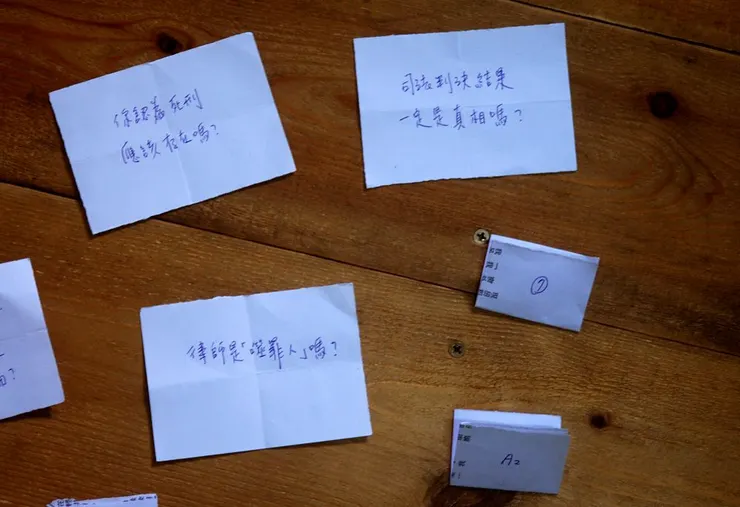 你認為死刑
應該存在嗎?
司法判決結果
一定是真相嗎?
律師是「噬罪人」嗎?
⑦
A2